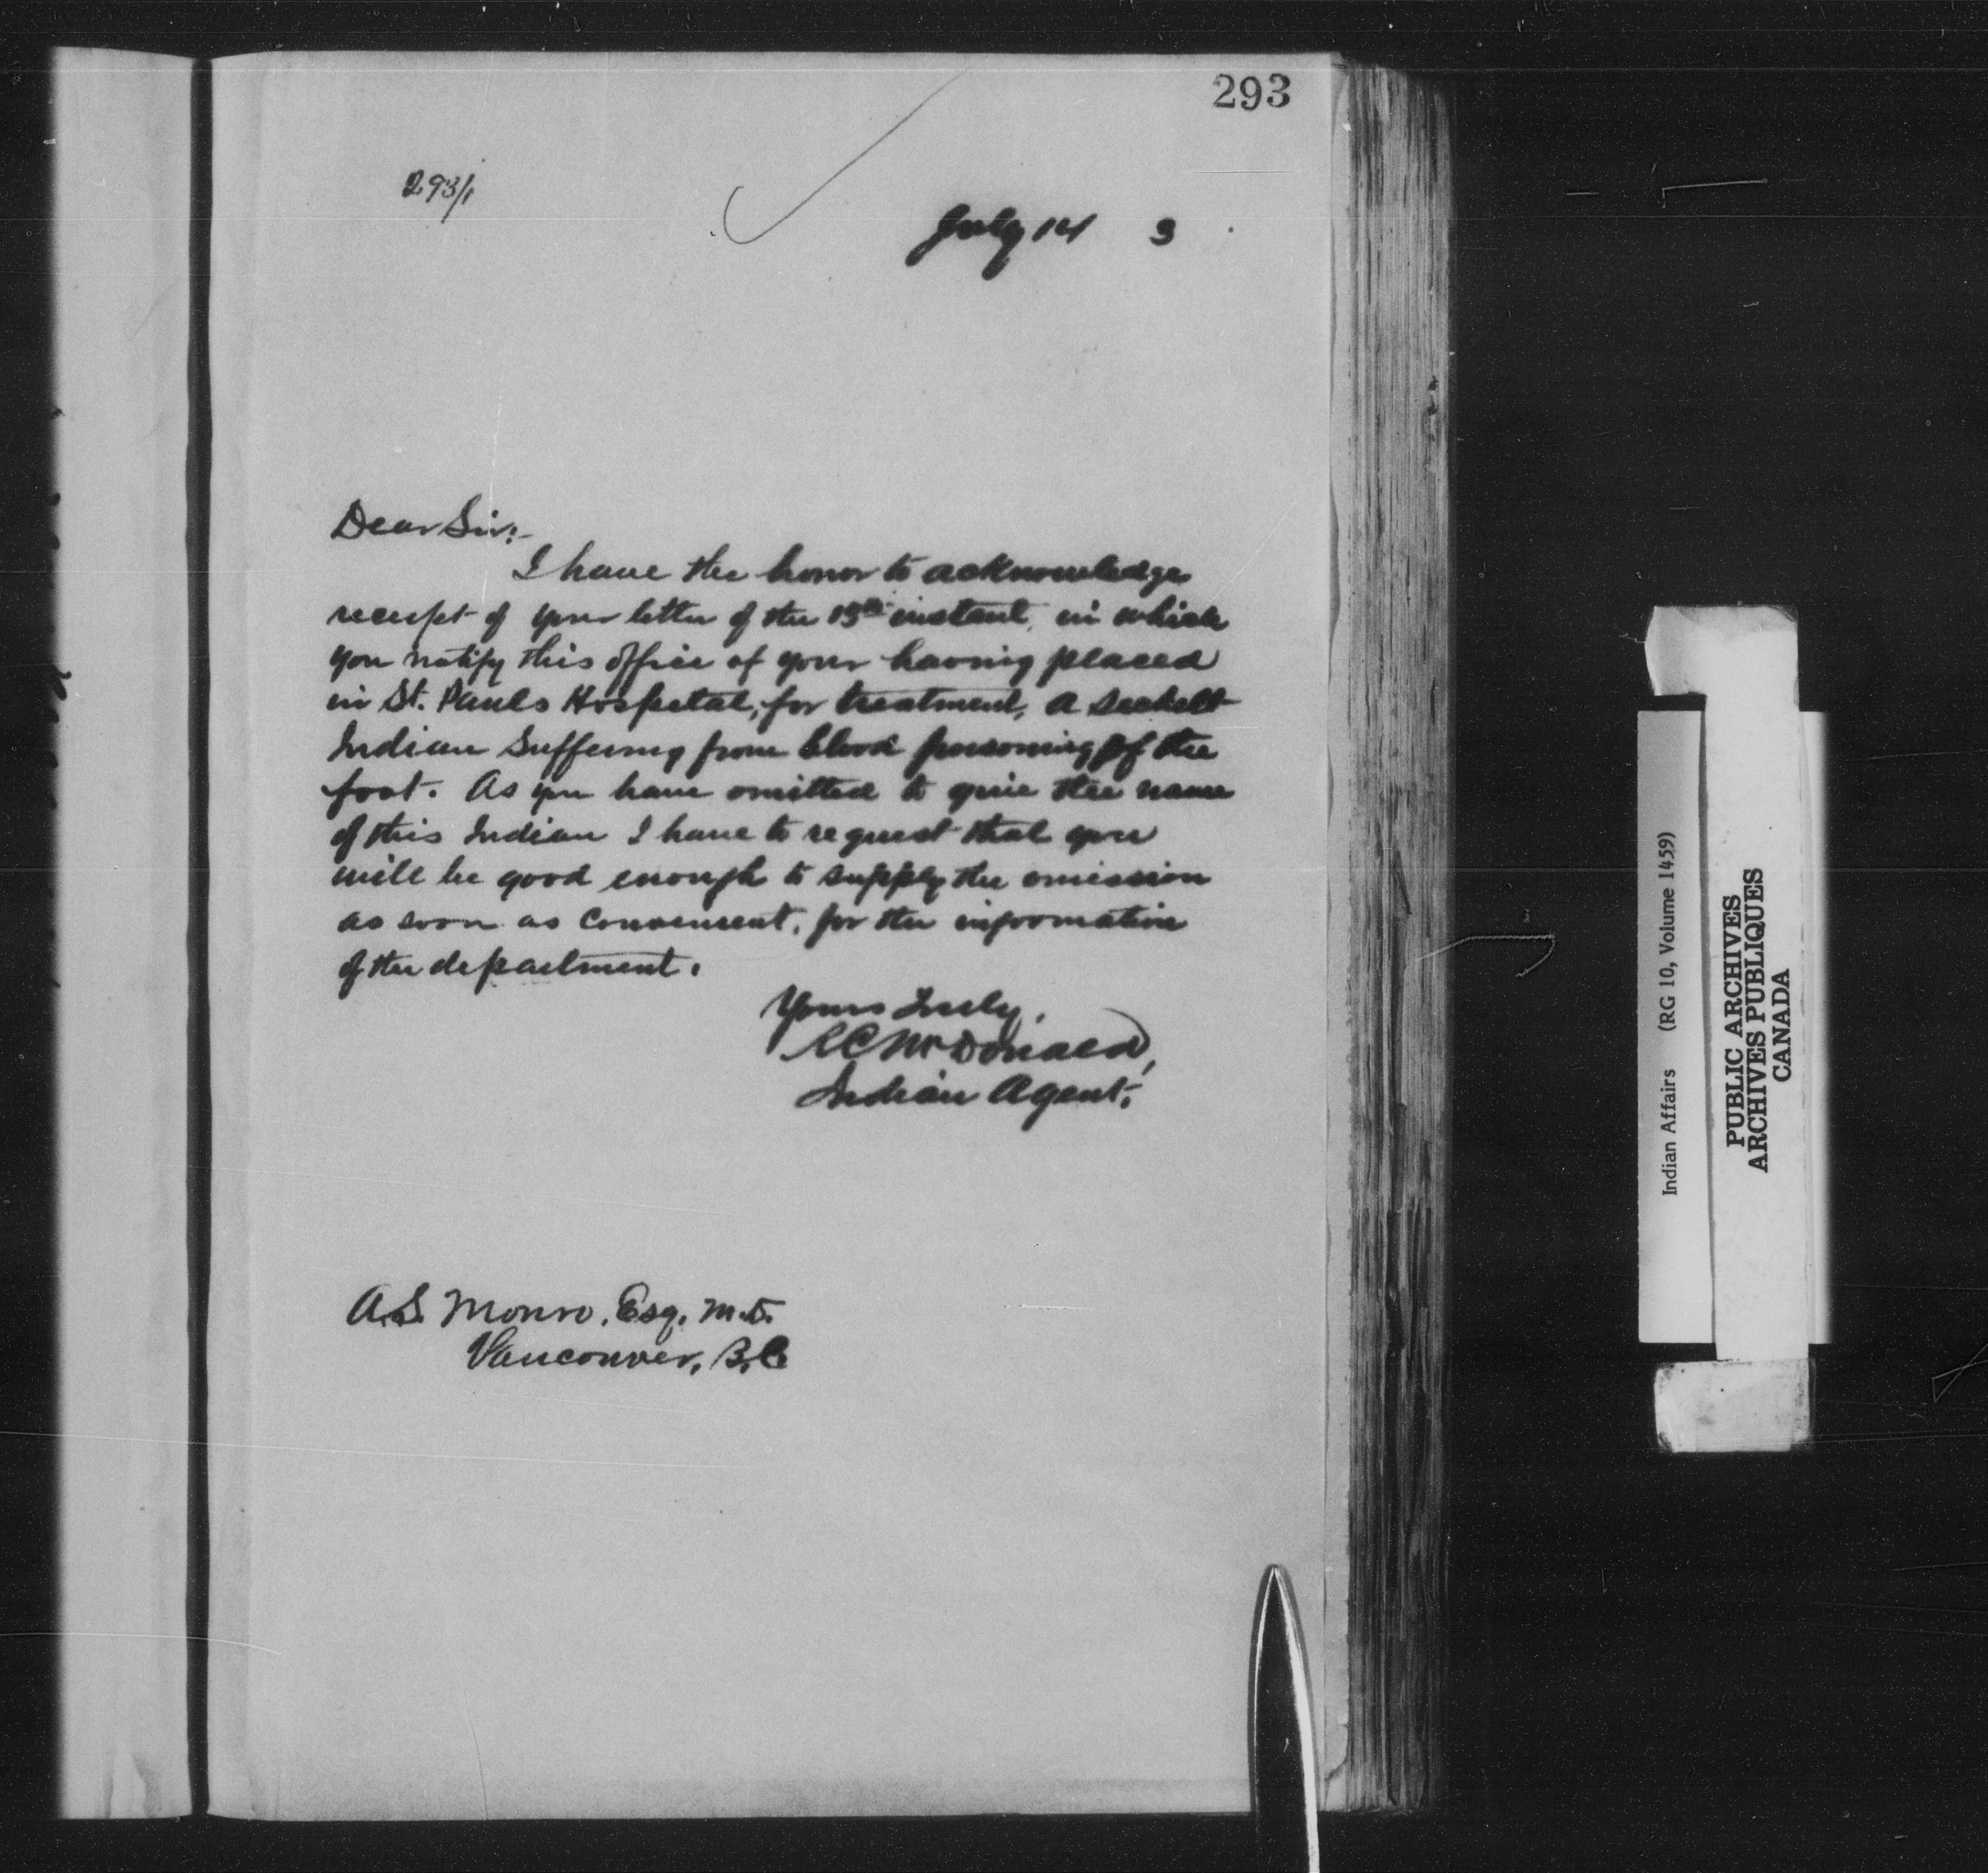 293
293/1
July 14 3
Dear Sir:-
I have the honor to acknowledge
receipt of your letter of the 13th instant, in which
you notify this office of your having placed
in St. Pauls Hospital, for treatment, a Sechelt
Indian suffering from blood poisoning of the
foot. As you have omitted to give the name
of this Indian I have to request that you
will be good enough to supply the omission
as soon as convenient, for the information
of the department.
Yours truly,
McDonald,
Indian Agent.
A.S. Monro, Esq. M.D.
Vancouver, B.C.
Indian Affairs (RG 10, Volume 1459)
PUBLIC ARCHIVES
ARCHIVES PUBLIQUES
CANADA